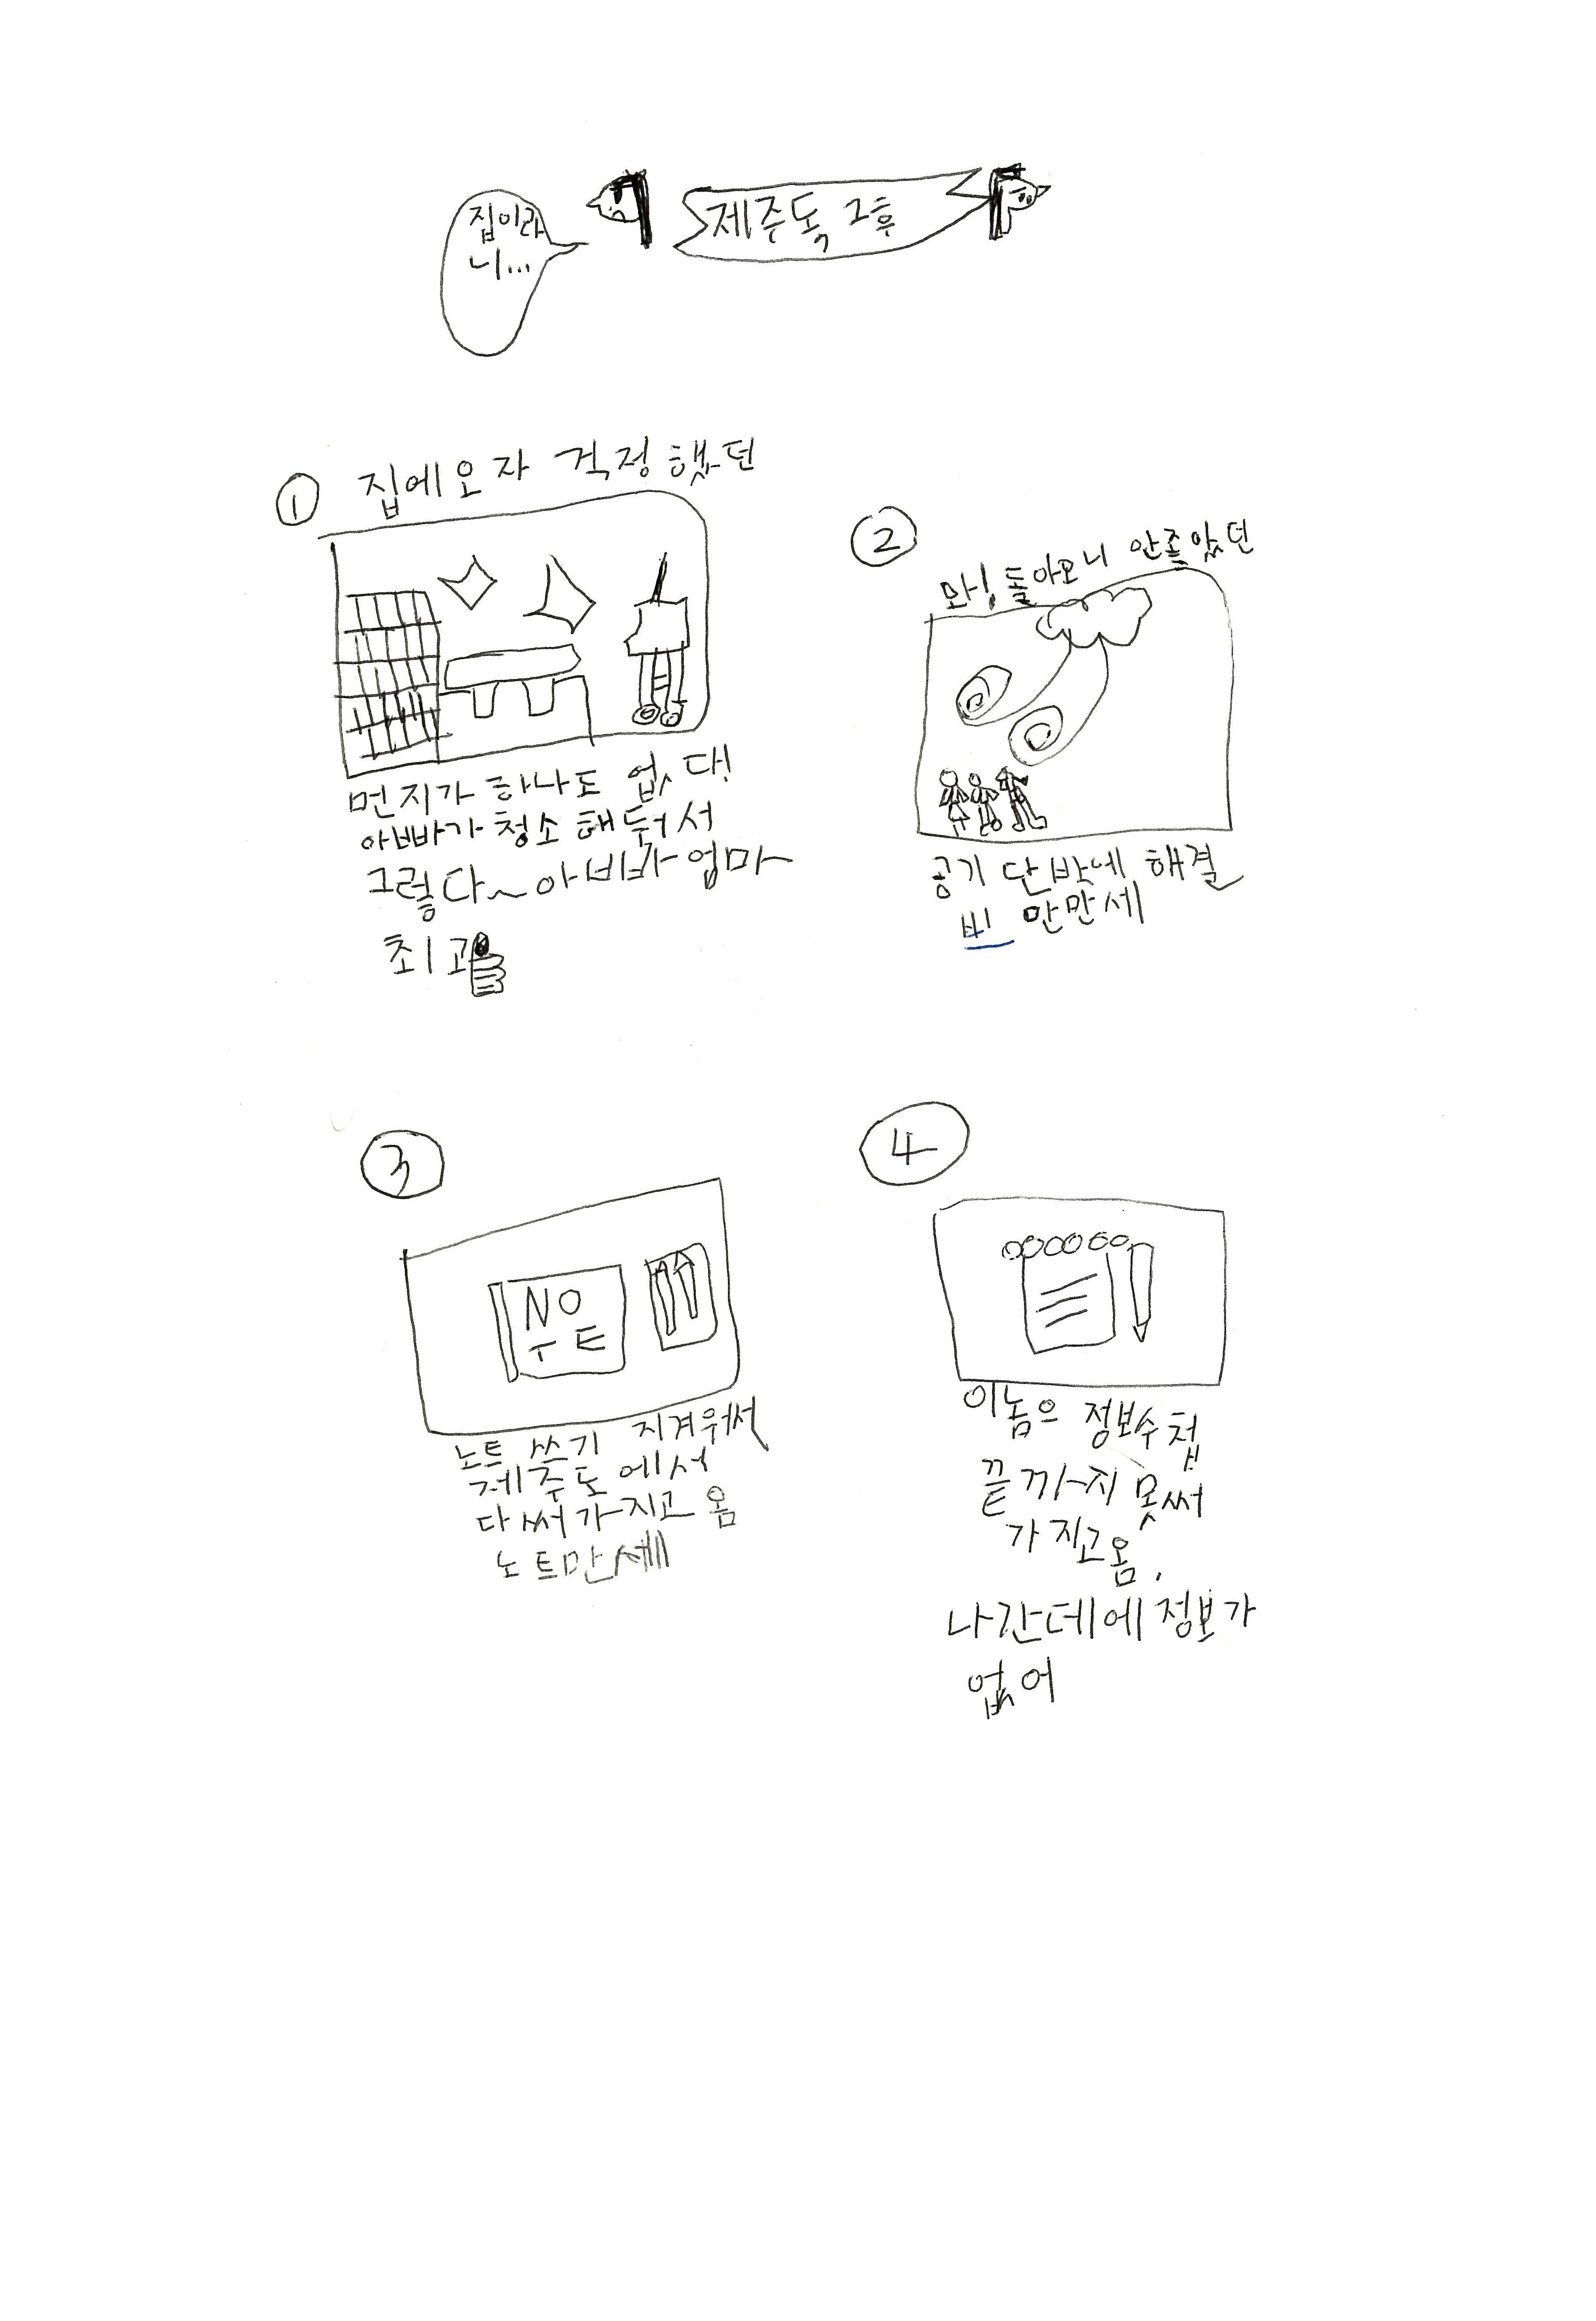 집이라
니...
제주도, 그후
① 집에오자 걱정했던
먼지가 하나도 없다!
아빠가 청소해둬서
그렇다~아빠 엄마
최고
② 와! 돌아오니 안좋았던
공기 단박에 해결
비 만만세
③
NO
TE
노트 쓰기 지겨워서
제주도에서
다써가지고 옴
노트만세
④
이놈으 정보수첩
끝까지 못써
가지고옴.
나간데에 정보가
없어